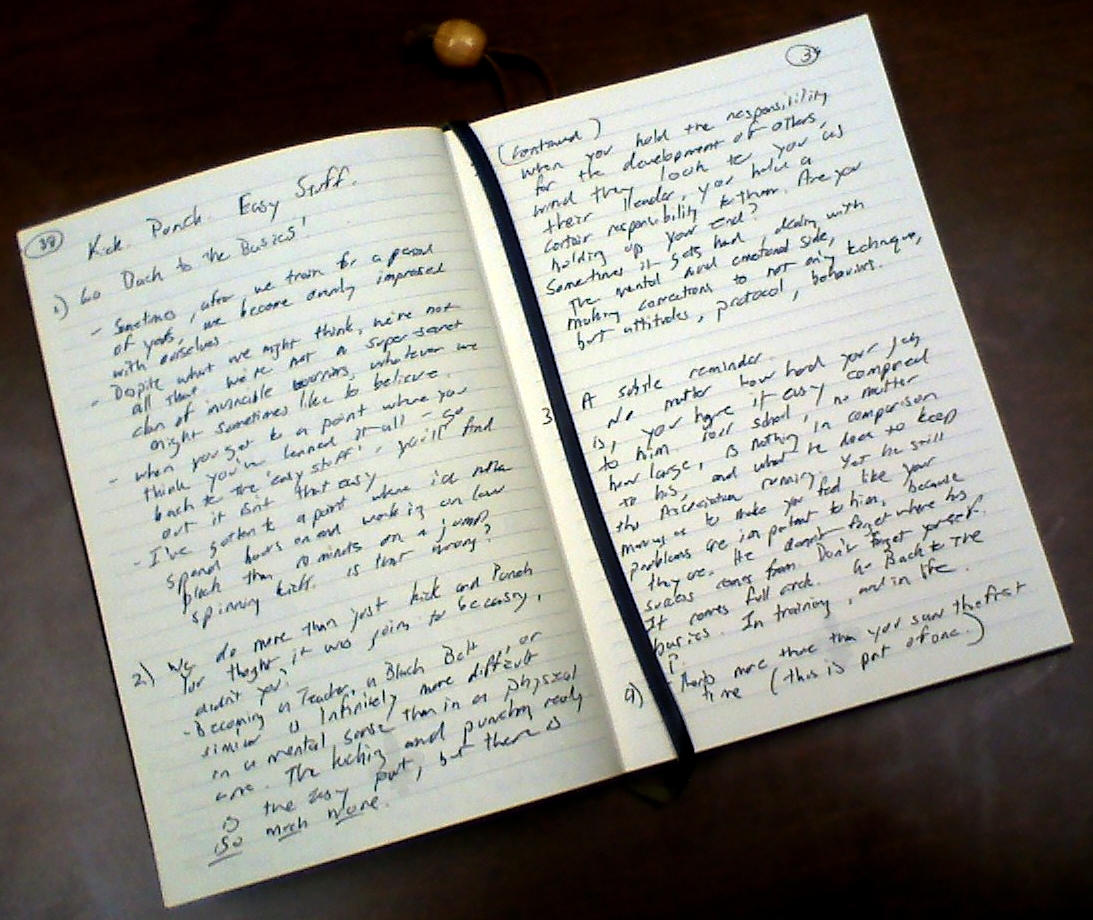 38
Kick. Punch. Easy Stuff.
1) Go Back to the Basics!
- Sometimes, after we train for a period
of years, we become overly impressed
with ourselves.
- Despite what we might think, we're not
all that. We're not a super secret
clan of invincible warriors, whatever we
might sometimes like to believe.
- When you get to a point where you
think you've learned it all - go
back to the 'easy stuff', you'll find
out it isn't that easy.
- I've gotten to a point where I'd rather
spend hours on end working on low
block than 10 minutes on a jump
spinning kick. is that wrong?
2) We do more than just kick and Punch
You thought it was going to be easy,
didn't you?
- Becoming a Teacher, a Black Belt or
similar is Infinitely more difficult
in a mental sense than in a physical
one. The kicking and punching really
is the easy part, but there is
so much more.
(continued)
when you hold the responsibility
for the development of others,
and they look to you as
their leader, you hold a
certain responsibility to them. Are you
holding up your end?
Sometimes it gets hard, dealing with
the mental and emotional side,
making corrections to not only technique,
but attitudes, protocol, behaviors.
3 A subtle reminder.
No matter how hard your job
is, you have it easy compared
to him. Your school, no matter
how large, is nothing in comparison
to his, and what he does to keep
the Association running. Yet he still
manages to make you feel like your
problems are important to him, because
they are. He doesn't forget where his
success comes from. Don't forget yourself.
It comes full circle. Go Back to The
basics. In training, and in life.
4) There's more there than you saw the first
time (this is part of one.)